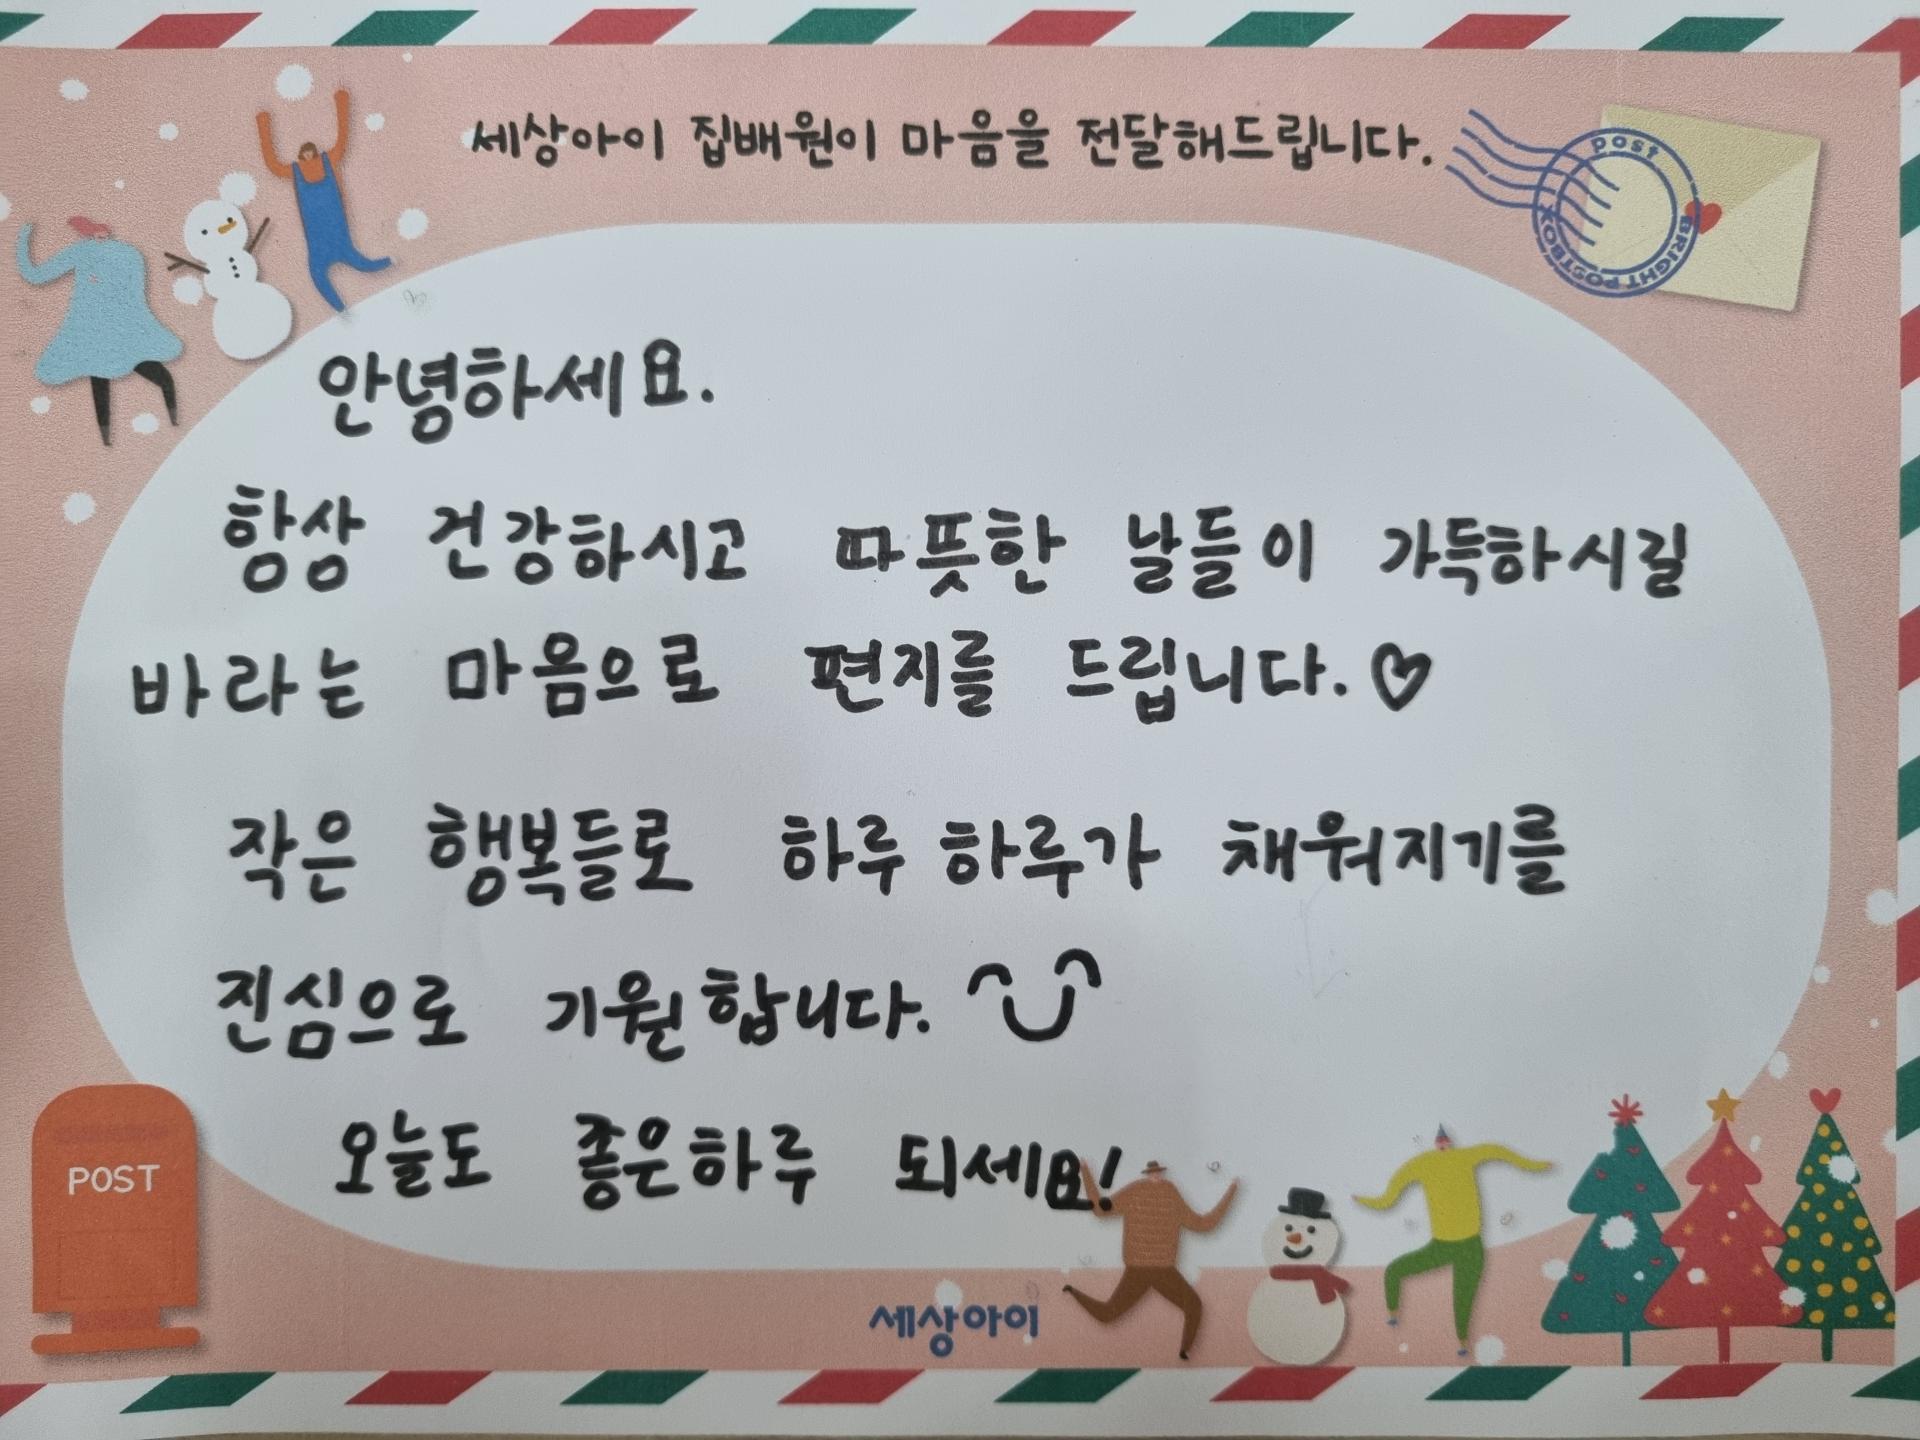 세상아이 집배원이 마음을 전달해드립니다.
post
BRIGHT POSTBOX
안녕하세요.
항상 건강하시고 따뜻한 날들이 가득하시길
바라는 마음으로 편지를 드립니다.♡
작은 행복들로 하루 하루가 채워지기를
진심으로 기원합니다.
오늘도 좋은하루 되세요!
POST
세상아이